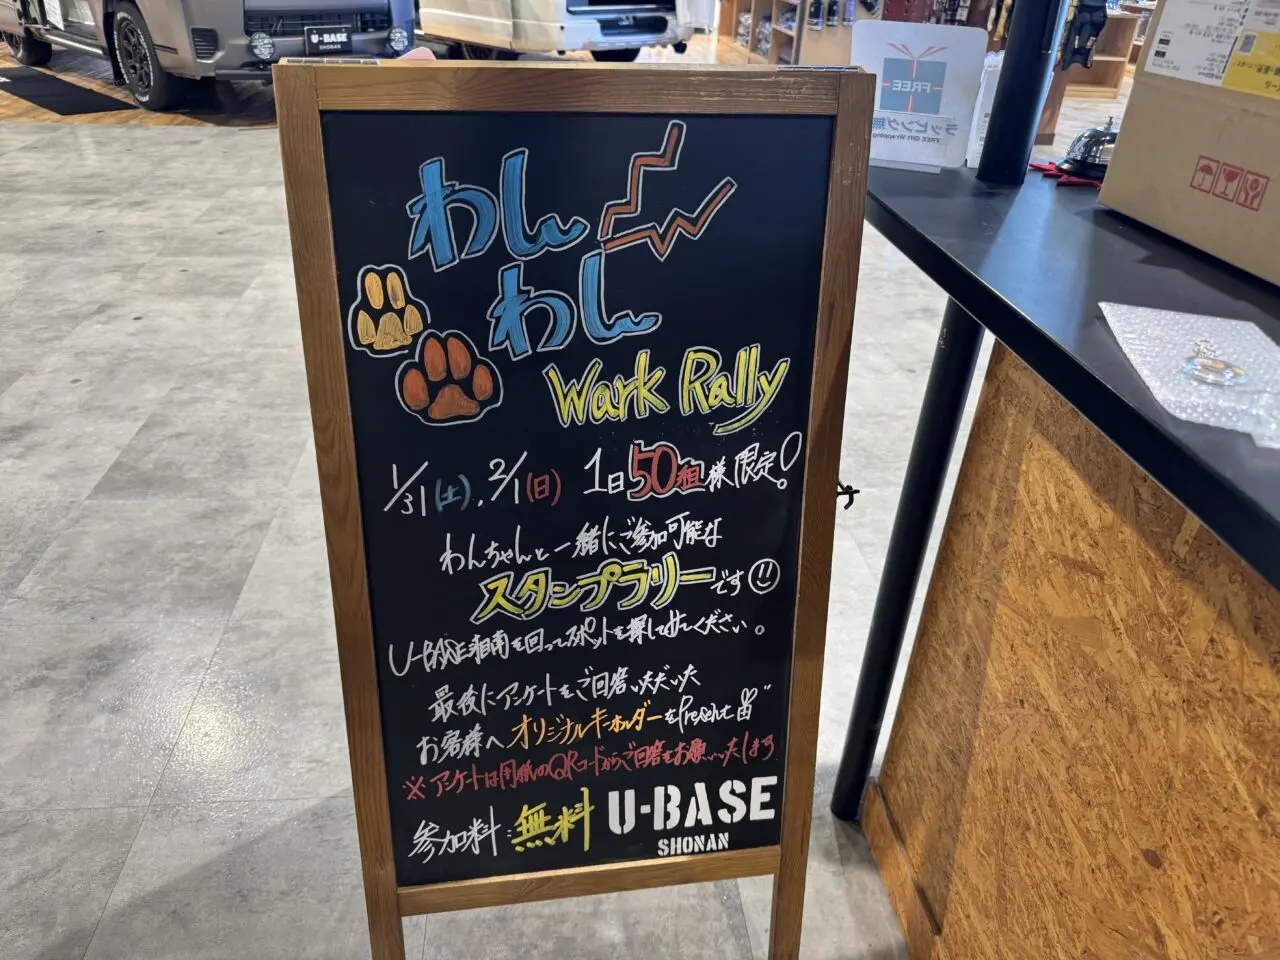 U-BASE
SHONAN
FREE
ラッピング無
FREE Gift Wrapping
わん
わん
Wark Rally
1/31(土)、2/1(日) 1日50組様限定!
わんちゃんと一緒にご参加可能な
スタンプラリーです
U-BASE湘南を回ってスポットを探してみてください。
最後にアンケートをご回答いただいた
お客様へオリジナルキーホルダーをPresent
※アンケートは用紙のQRコードからご回答をお願いいたします
参加料:無料
U-BASE
SHONAN